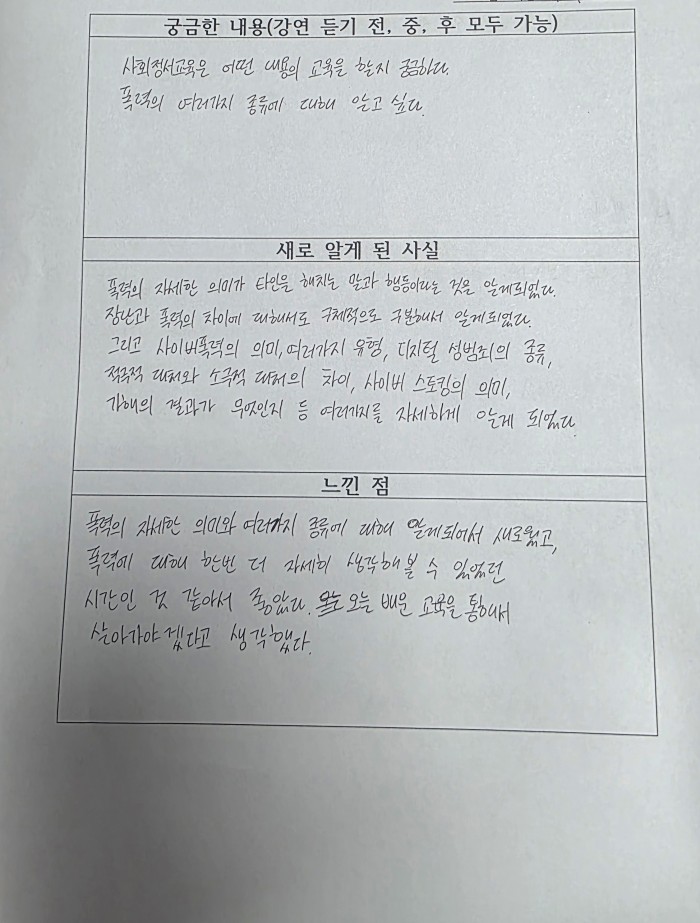 궁금한 내용(강연 듣기 전, 중, 후 모두 가능)
사회정서교육은 어떤 내용의 교육을 할지 궁금하다.
폭력의 여러가지 종류에 대해 알고 싶다.
새로 알게 된 사실
폭력의 자세한 의미가 타인을 해치는 말과 행동이라는 것을 알게되었다.
장난과 폭력의 차이에 대해서도 구체적으로 구분해서 알게되었다.
그리고 사이버폭력의 의미, 여러가지 유형, 디지털 성범죄의 종류,
적극적 대처와 소극적 대처의 차이, 사이버 스토킹의 의미,
가해의 결과가 무엇인지 등 여러가지를 자세하게 알게 되었다.
느낀 점
폭력의 자세한 의미와 여러가지 종류에 대해 알게되어서 새로웠고,
폭력에 대해 한번 더 자세히 생각해 볼 수 있었던
시간인 것 같아서 좋았다. 오늘 배운 교육을 통해서
살아가야겠다고 생각했다.